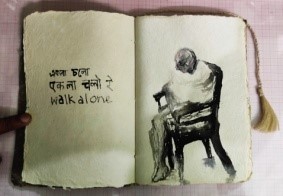 একলা চলো
एकला चलो रे
walk alone